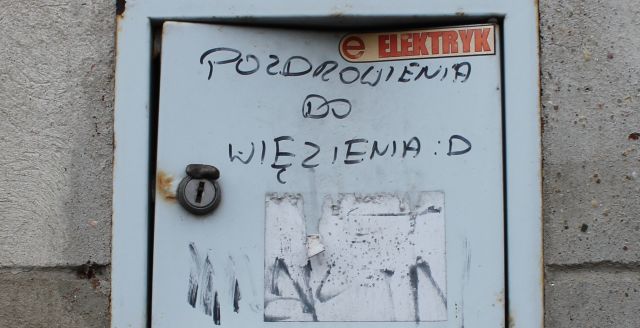 e ELEKTRYK
POZDROWIENIA
DO
WIĘZIENIA :D